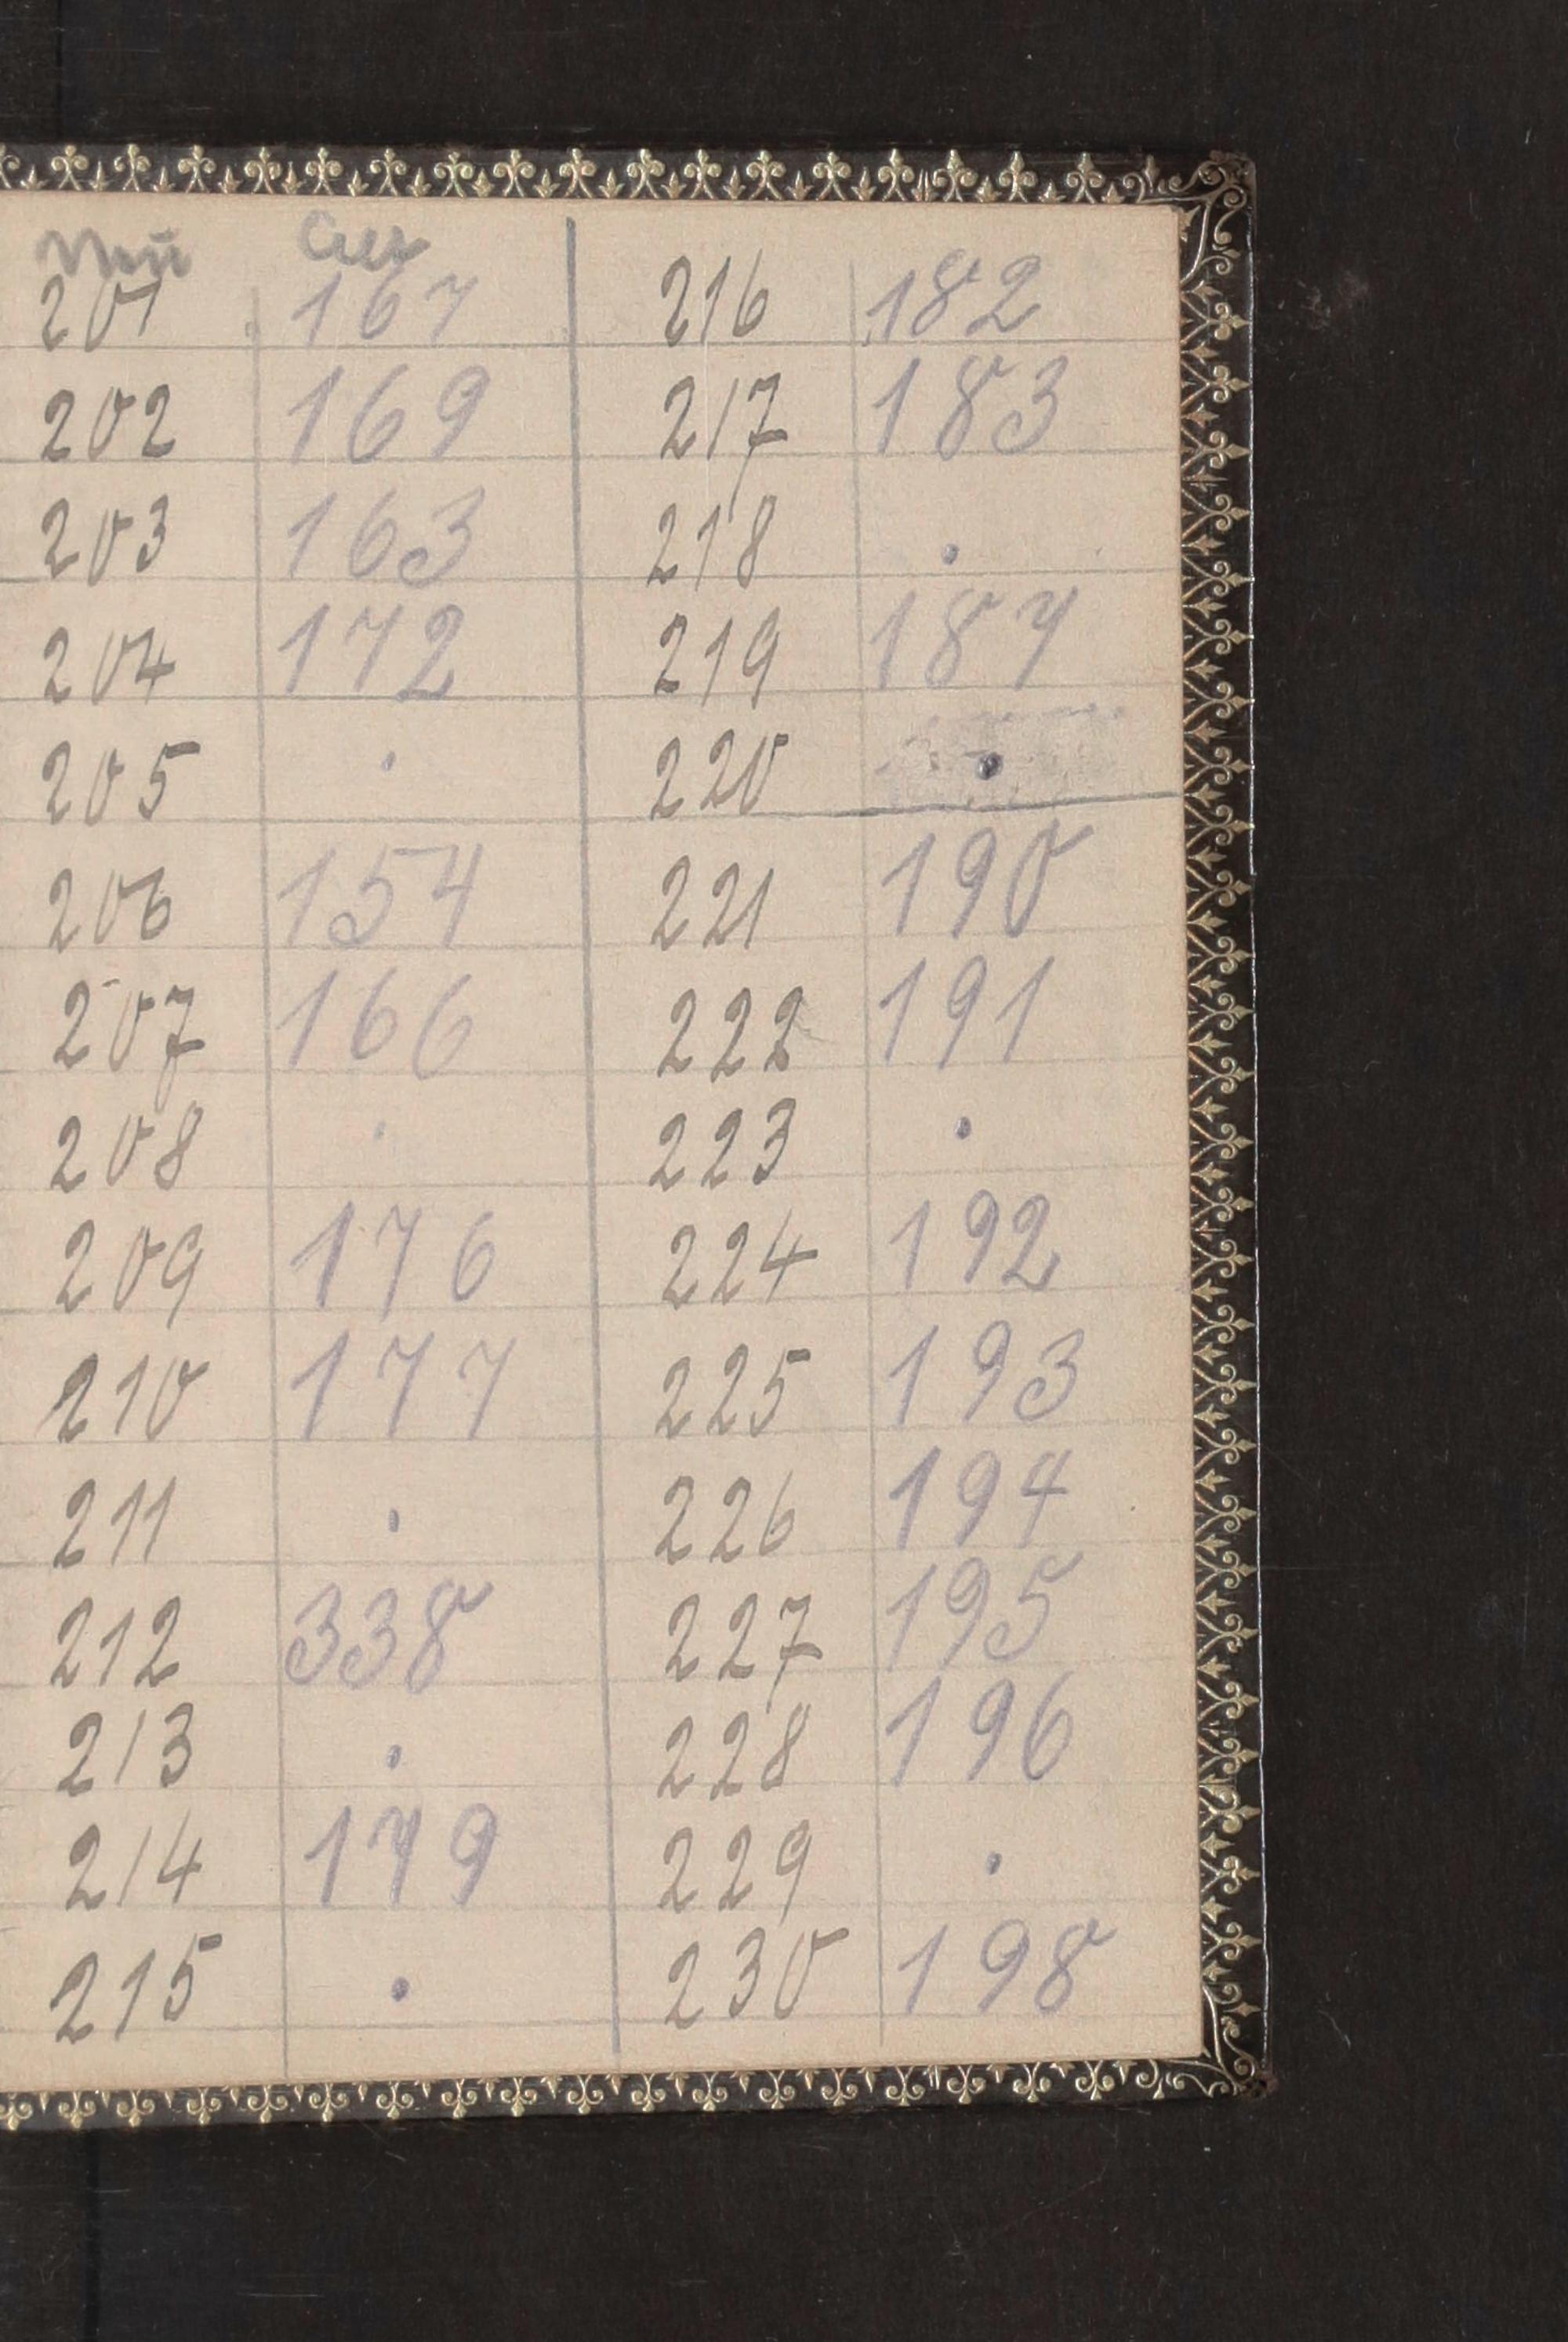 Neu Alt
201 167 216 182
202 169 217 183
203 163 218 .
204 172 219 187
205 . 220 .
206 154 221 190
207 166 222 191
208 . 223 .
209 176 224 192
210 177 225 193
211 . 226 194
212 338 227 195
213 . 228 196
214 179 229 .
215 . 230 198